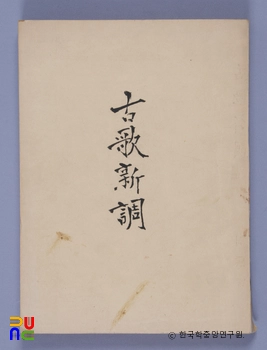 古歌新調
ⓒ 한국학중앙연구원